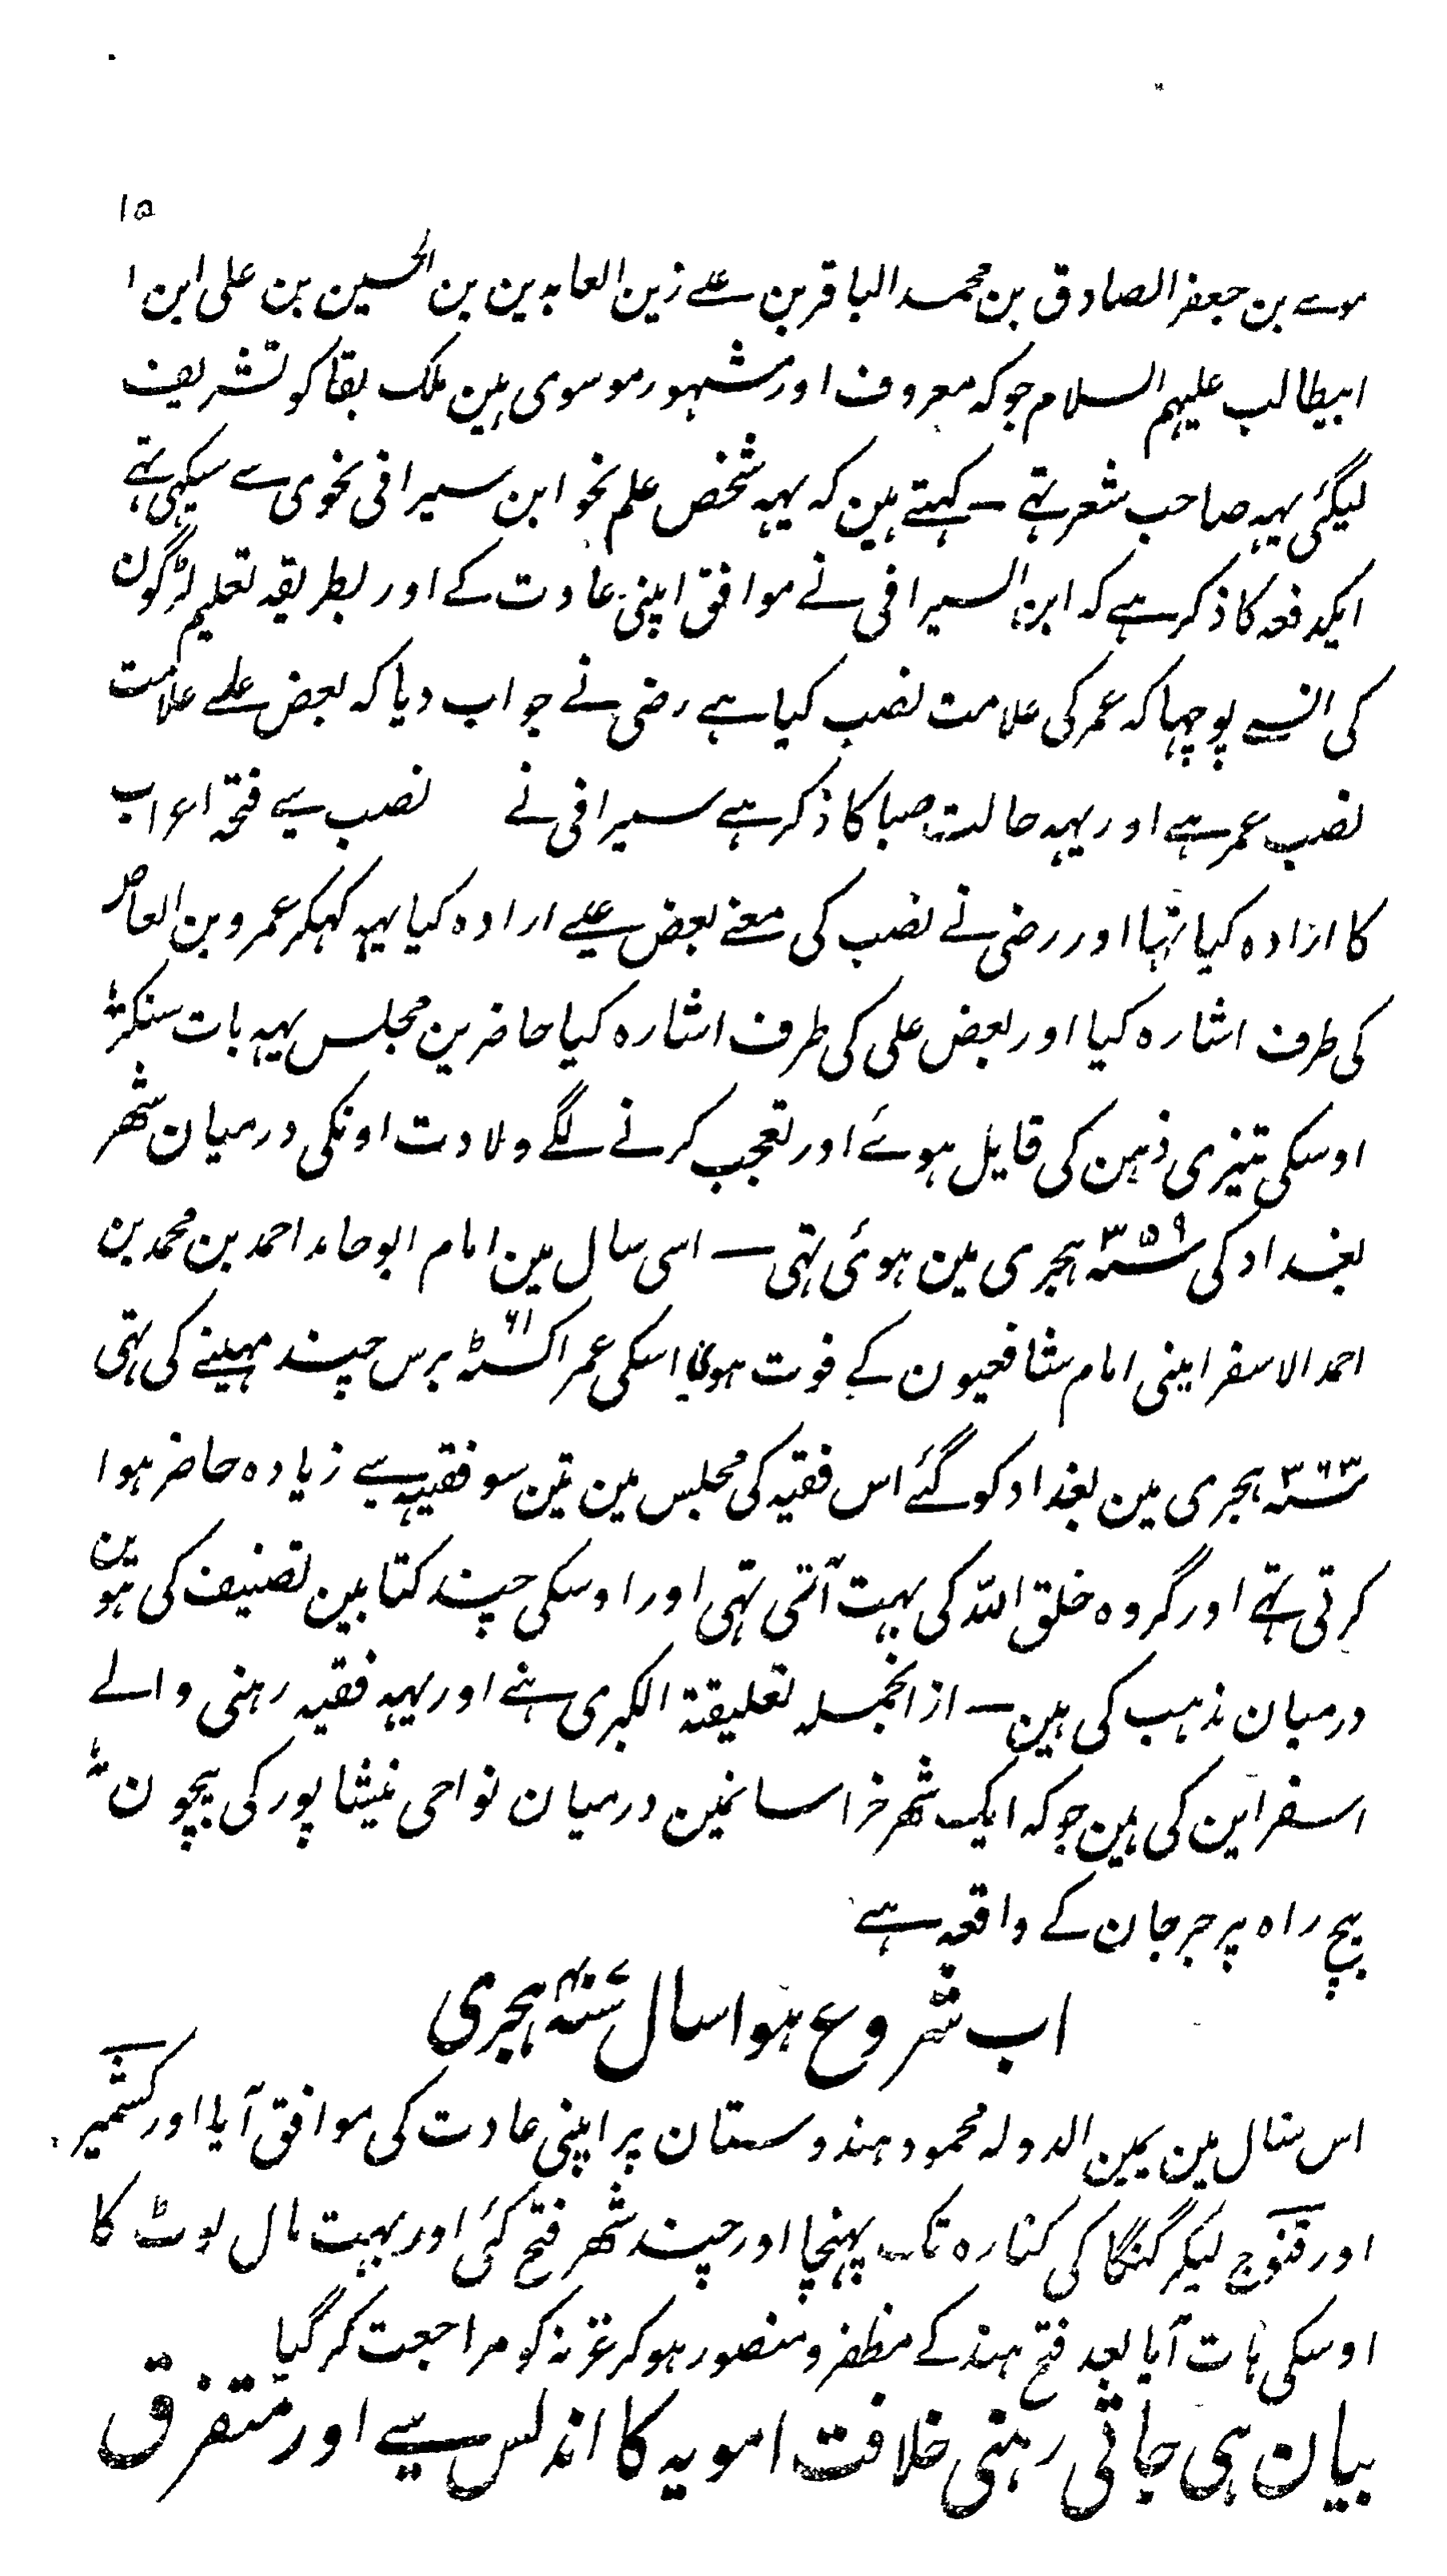 ۱۵
موسے بن جعفر الصادق بن محمد الباقر بن علے زین العابدین بن الحسین بن علی ابن ا
ابیطالب علیہم السلام جو کہ معروف اور مشہور موسوی ہین ملک بقا کو تشریف
لیگئی یہہ صاحب شعر تہے – کہتے ہین کہ یہہ شخص علم نحو ابن سیرافی نحوی سے سیکہی تہے
ایکدفعہ کا ذکر ہے کہ ابن السیرافی نے موافق اپنی عادت کے اور بطریقہ تعلیم لڑگون
کی انسے پوچہا کہ عمر کی علامت نصب کیا ہے رضی نے جواب دیا کہ بعض علے علامت
نصب عمر ہے اور یہہ حالت صبا کا ذکر ہے سیرافی نے نصب سے فتحہ اعراب
کا ارادہ کیا تہا اور رضی نے نصب کی معنے بعض علے ارادہ کیا یہہ کہکر عمرو بن العاص
کی طرف اشارہ کیا اور بعض علی کی طرف اشارہ کیا حاضرین مجلس یہہ بات سنکر
اوسکی تیزی ذہن کی قایل ہوئے اور تعجب کرنے لگے ولادت اونکی درمیان شھر
بغداد کی ۳۵۹ سنہ ہجری مین ہوئی تہی – اسی سال مین امام ابو حامد احمد بن محمد بن
احمد الاسفراینی امام شافعیون کے فوت ہوئے اسکی عمر اکسٹہ ۶۱ برس چند مہینے کی تہی
۳۶۳ سنہ ہجری مین بغداد کو گئے اس فقیہ کی مجلس مین تین سو فقیہہ سے زیادہ حاضر ہوا
کرتی تہے اور گروہ خلق اللہ کی بہت آتی تہی اور اوسکی چند کتابین تصنیف کی ہوین
درمیان مذہب کی ہین – ازانجملہ تعلیقة الکبری ہے اور یہہ فقیہ رہنی والے
اسفراین کی ہین جو کہ ایک شھر خراسانمین درمیان نواحی نیشاپور کی بیچون
بیچ راہ پر جرجان کے واقعہ ہے
اب شروع ہوا سال ۴۰۷ سنہ ہجری
اس سال مین یمین الدولہ محمود ہندوستان پر اپنی عادت کی موافق آیا اور کشمیر
اور قنوج لیکر گنگا کی کنارہ تک پہنچا اور چند شھر فتح کئی اور بہت مال لوٹ کا
اوسکی ہات آیا بعد فتح ہند کے مظفر و منصور ہو کر غزنہ کو مراجعت کر گیا
بیان ہی جاتی رہنی خلافت امویہ کا اندلس سے اور متفرق